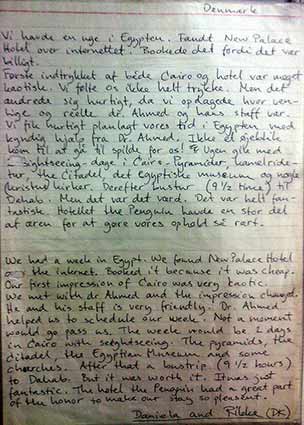 Denmark
Vi havde en uge i Egypten. Fandt New Palace
Hotel over internettet. Bookede det fordi det var
billigt.
Første indtrykket af både Cairo og hotel var meget
kaotisk. Vi følte os ikke helt trygge. Men det
ændrede sig hurtigt, da vi opdagede hvor ven-
lige og reelle dr. Ahmed og hans staff var.
Vi fik hurtigt planlagt vores tid i Egypten, med
kyndig hjælp fra Dr. Ahmed. Ikke et øjeblik
kom til at gå til spilde for os! Ugen gik med
2 sightseeing-dage i Cairo. Pyramider, kamelride-
tur, the Citadel, det Egyptiske museum og nogle
kristne kirker. Derefter bustur (9 1/2 time) til
Dahab. Men det var det værd. Det var helt fan-
tastisk. Hotellet the Penguin havde en stor del
af æren for at gøre vores ophold så rart.
We had a week in Egypt. We found New Palace Hotel
on the internet. Booked it because it was cheap.
Our first impression of Cairo was very kaotic.
We met with dr Ahmed and the impression changed.
He and his staff is very friendly. Dr. Ahmed
helped us to schedule our week. Not a moment
would go pass us. The week would be 2 days
in Cairo with seeightseeing. The pyramids, the
citadel, the Egyptian Museum and some
churches. After that a boustrip (9 1/2 hours)
to Dahab. But it was worth it. It was just
fantastic. The hotel the Penguin had a great part
of the honor to make our stay so pleasent.
Daniela and Rikke (DK)